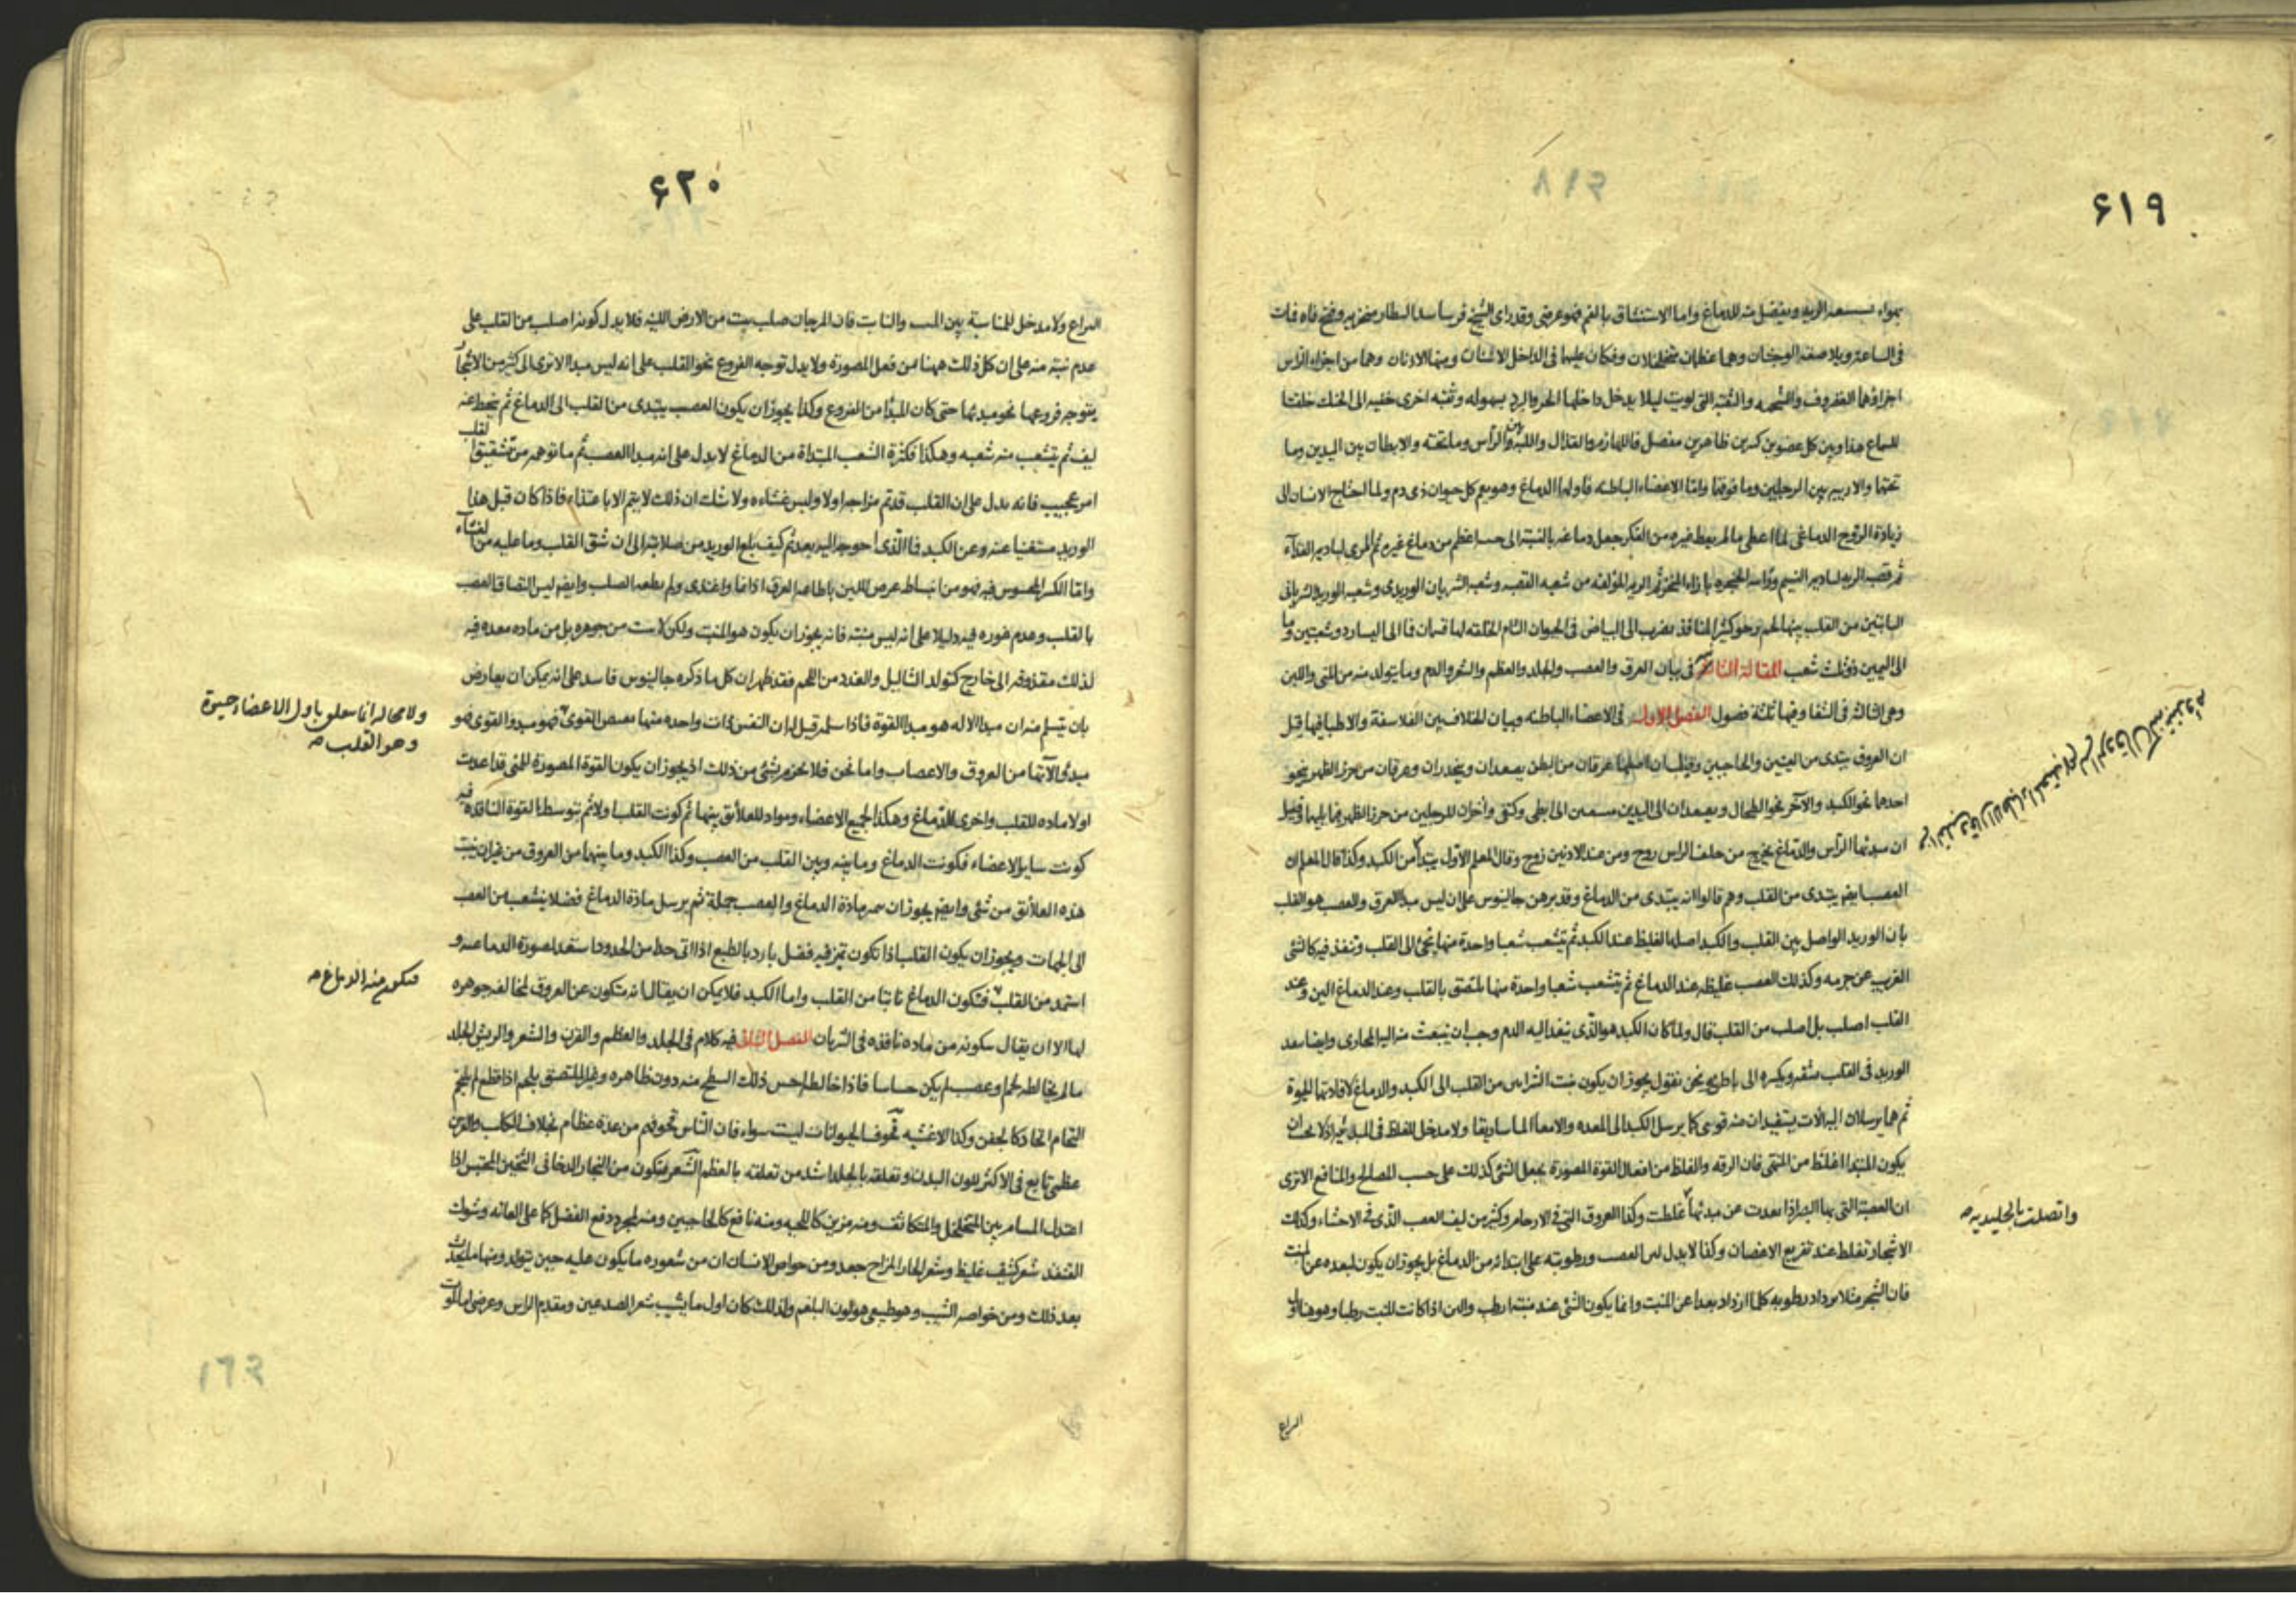 ۶۱۹
فى الساعة ويلاصقه الوجنتان وهما عظمان متخلخلان وفكان عليهما فى الداخل الاسنان ومنها الاذنان وهما من اجزاء الرأس
اجزاؤهما الغضروف والشحمه والثقبه التى لويت ليلا يدخل داخلها الحر والبرد بسهوله وثقبه اخرى خفيه الى الحنك خلقتا
للسماع هذا وبين كل عضوين كبرين ظاهرين مفصل فاللهازم والقذال واللبه بين الرأس وما تحته والابطان بين اليدين وما
تحتها والاربيه بين الرجلين وما فوقها واما الاعضاء الباطنه فاولها الدماغ وهو يعم كل حيوان ذى دم ولما احتاج الانسان الى
زيادة الروح الدماغى لما اعطى ما لم يعط غيره من الفكر جعل دماغه بالنسبة الى حسه اعظم من دماغ غيره ثم المرى لبادير الغذاء
ثم قصبه الريه لبادير النسيم ورأسه الحنجره بازاء المنخر ثم الريه المؤلفه من شعبه القصبه وشعب الشريان الوريدى وشعب الوريد الشريانى
النابتين من القلب بينها لحم رخو كثير المنافذ يضرب الى البياض فى الحيوان التام الخلقه لها قسمان فالى اليسار ذو شعبتين واما
الى اليمين ذو ثلث شعب المقالة الثالثة فى بيان العرق والعصب والجلد والعظم والشعر والدم وما يتولد منه من المنى واللبن
وهى الثالثه فى الشفا وفيها ثلثة فصول الفصل الاول فى الاعضاء الباطنه وبيان اختلاف بين الفلاسفة والاطباء فيها قيل
ان العروق يبتدى من العينين والحاجبين وقيل ان اصلها عرقان من البطن يصعدان وينحدران وعرقان من خرز الظهر ينحو
احدهما نحو الكبد والآخر نحو الطحال ويصعدان الى اليدين الى ابطى وكتفى واخران للرجلين من خرز الظهر مما يليها وقيل
ان مبدئها الرأس والدماغ يخرج من خلف الرأس زوج ومن عند الاذنين زوج وقال المعلم الاول يبتدأ من الكبد وكذا قال المعلم ان
العصب ايضا يبتدى من القلب وهم قالوا انه يبتدى من الدماغ وقد برهن جالينوس على ان ليس مبدأ العرق والعصب هو القلب
بان الوريد الواصل بين القلب والكبد اصلها الغليظ عند الكبد ثم تشعب شعبا واحدة منها يجئ الى القلب وتنفذ فيه كالشئ
الغريب عن جرمه وكذلك العصب غليظه عند الدماغ ثم يتشعب شعبا واحدة منها يلتصق بالقلب وعند الدماغ الين وعند
القلب اصلب بل اصلب من القلب قال ولما كان الكبد هو الذى ينفد اليه الدم وجب ان ينبعث منه اليه المجارى وايضا بعد
الوريد فى القلب شقه ويكسره الى باطن ونحن نقول يجوز ان يكون نبت الشرائين من القلب الى الكبد والدماغ لافادتها الحيوة
ثم هما يرسلان اليه آلات يستفيدان منه قوى كما يرسل الكبد الى المعده والامعاء الماساريقا ولا مدخل للغلظ فى المبدئيه اذ لا يجب ان
يكون المبتدا اغلظ من المنتهى فان الرقه والغلظ من افعال القوة المصورة يجعل الشئ كذلك على حسب المصالح والمنافع الا ترى
ان العصبة التى بها البصر اذا بعدت عن مبدئها غلظت وكذا العروق التى فى الارحام وكثير من ليف العصب الذى فى الاحشاء وكذلك
الاشجار تغلظ عند تفريع الاغصان وكذا لا يدل لين العصب ورطوبته على ابتدائه من الدماغ بل يجوز ان يكون لبعده عن المنبت
فان الشجر مثلا يزداد رطوبه كلما ازداد بعدا عن المنبت وانما يكون الشئ عند منبته ارطب والين اذا كانت المنبت رطبا وهو هنا
واتصلت بالجليديه صح
۶۲۰
عدم نبته منه على ان كل ذلك ههنا من فعل المصورة ولا يدل توجه الفروع نحو القلب على انه ليس مبدأ الا ترى الى كثير من الاشجار
يتوجه فروعها نحو مبدئها حتى كان المبدأ من الفروع وكذا يجوز ان يكون العصب يبتدى من القلب الى الدماغ ثم ينحط عنه
ليف ثم يتشعب منه شعبه وهكذا فكثرة الشعب المبتداة من الدماغ لا يدل على انه مبدأ العصب ثم ما توهمه من تشقيق القلب
امر عجيب فانه يدل على ان القلب قد تم مزاجه اولا ولبس غشاءه ولا شك ان ذلك لا يتم الا باغتذاء فاذا كان قبل هذا
الوريد مستغنيا عنه وعن الكبد فما الذى احوجه اليه بعد ثم كيف بلغ الوريد من صلابته الى ان شق القلب وما عليه من الغشاء
بالقلب وعدم غوره فيه دليلا على انه ليس منبته فانه يجوز ان يكون هو المنبت ولكن لا ينبت من جوهره بل من ماده معده فيه
لذلك مقذوفه الى خارج كتولد الثاليل والغدد من اللحم فقد ظهر ان كل ما ذكره جالينوس فاسد على انه يمكن ان يعارض
بان تيسلم منه ان مبدأ الاله هو مبدأ القوة فاذا سلم قيل له ان النفس ذات واحده منها بعض القوى فهو مبدأ القوى هو
ولا محاله انما يتعلق باول الاعضاء حيوة
وهو القلب صح
مبدأ آلاتها من العروق والاعصاب واما نحن فلا نحزم بشئ من ذلك اذ يجوز ان يكون القوة المصورة للمنى قد اعدت
اولا ماده للقلب واخرى للدماغ وهكذا لجميع الاعضاء ومواد للعلائق بينها ثم كونت القلب اولا ثم بتوسط القوة النافذة فيه
كونت ساير الاعضاء فكونت الدماغ وما بينه وبين القلب من العصب وكذا الكبد وما بينهما من العروق من غير ان ينبت
هذه العلائق من شئ وايضا يجوز ان مادة الدماغ والعصب جملة ثم يرسل مادة الدماغ فضلا ينشعب من العصب
الى الجهات ويجوز ان يكون القلب اذا تكون تميز فيه فضل بارد بالطبع اذا اتى حدا من الحدود استعد لصورة الدماغيه و
استمد من القلب فتكون الدماغ نابتا من القلب واما الكبد فلا يمكن ان يقال انه يتكون عن العروق لمخالفه جوهره
فيتكون منه الدماغ صح
لها الا ان يقال يتكونه من ماده نافذه فى الشريان الفصل الثانى فيه كلام فى الجلد والعظم والقرن والشعر والريش الجلد
ما لم يخالطه لحم او عصب لم يكن حساسا فاذا خالطه احس ذلك السطح منه دون ظاهره وغير الملتصق بلحم اذا قطع لم يلتحم
التحام اتحاد كالجفن وكذا الاغشيه قحوف الحيوانات ليست سواء فان الناس قحوفهم من عدة عظام بخلاف الكلاب والقرن
عظمى تابع فى الاكثر للون البدن وتعلقه بالجلد اشد من تعلقه بالعظم الشعر يتكون من البخار الدخانى الثخين المحتبس اذا
اعتدل المسام بين المتخلخل والمتكاثف ومنه مزين كاللحيه ومنه نافع كالحاجبين ومنه لمجرد دفع الفضل كما على العانه وشوك
القنفذ شعر كثيف غليظ وشعر الحار المزاج جعد ومن خواص الانسان ان من شعوره ما يكون عليه حين يتولد ومنها ما يحدث
بعد ذلك ومن خواصه الشيب وهو طبيعى هو لون البلغم ولذلك كان اول ما يشيب شعر الصدغين ومقدم الراس وعرضى